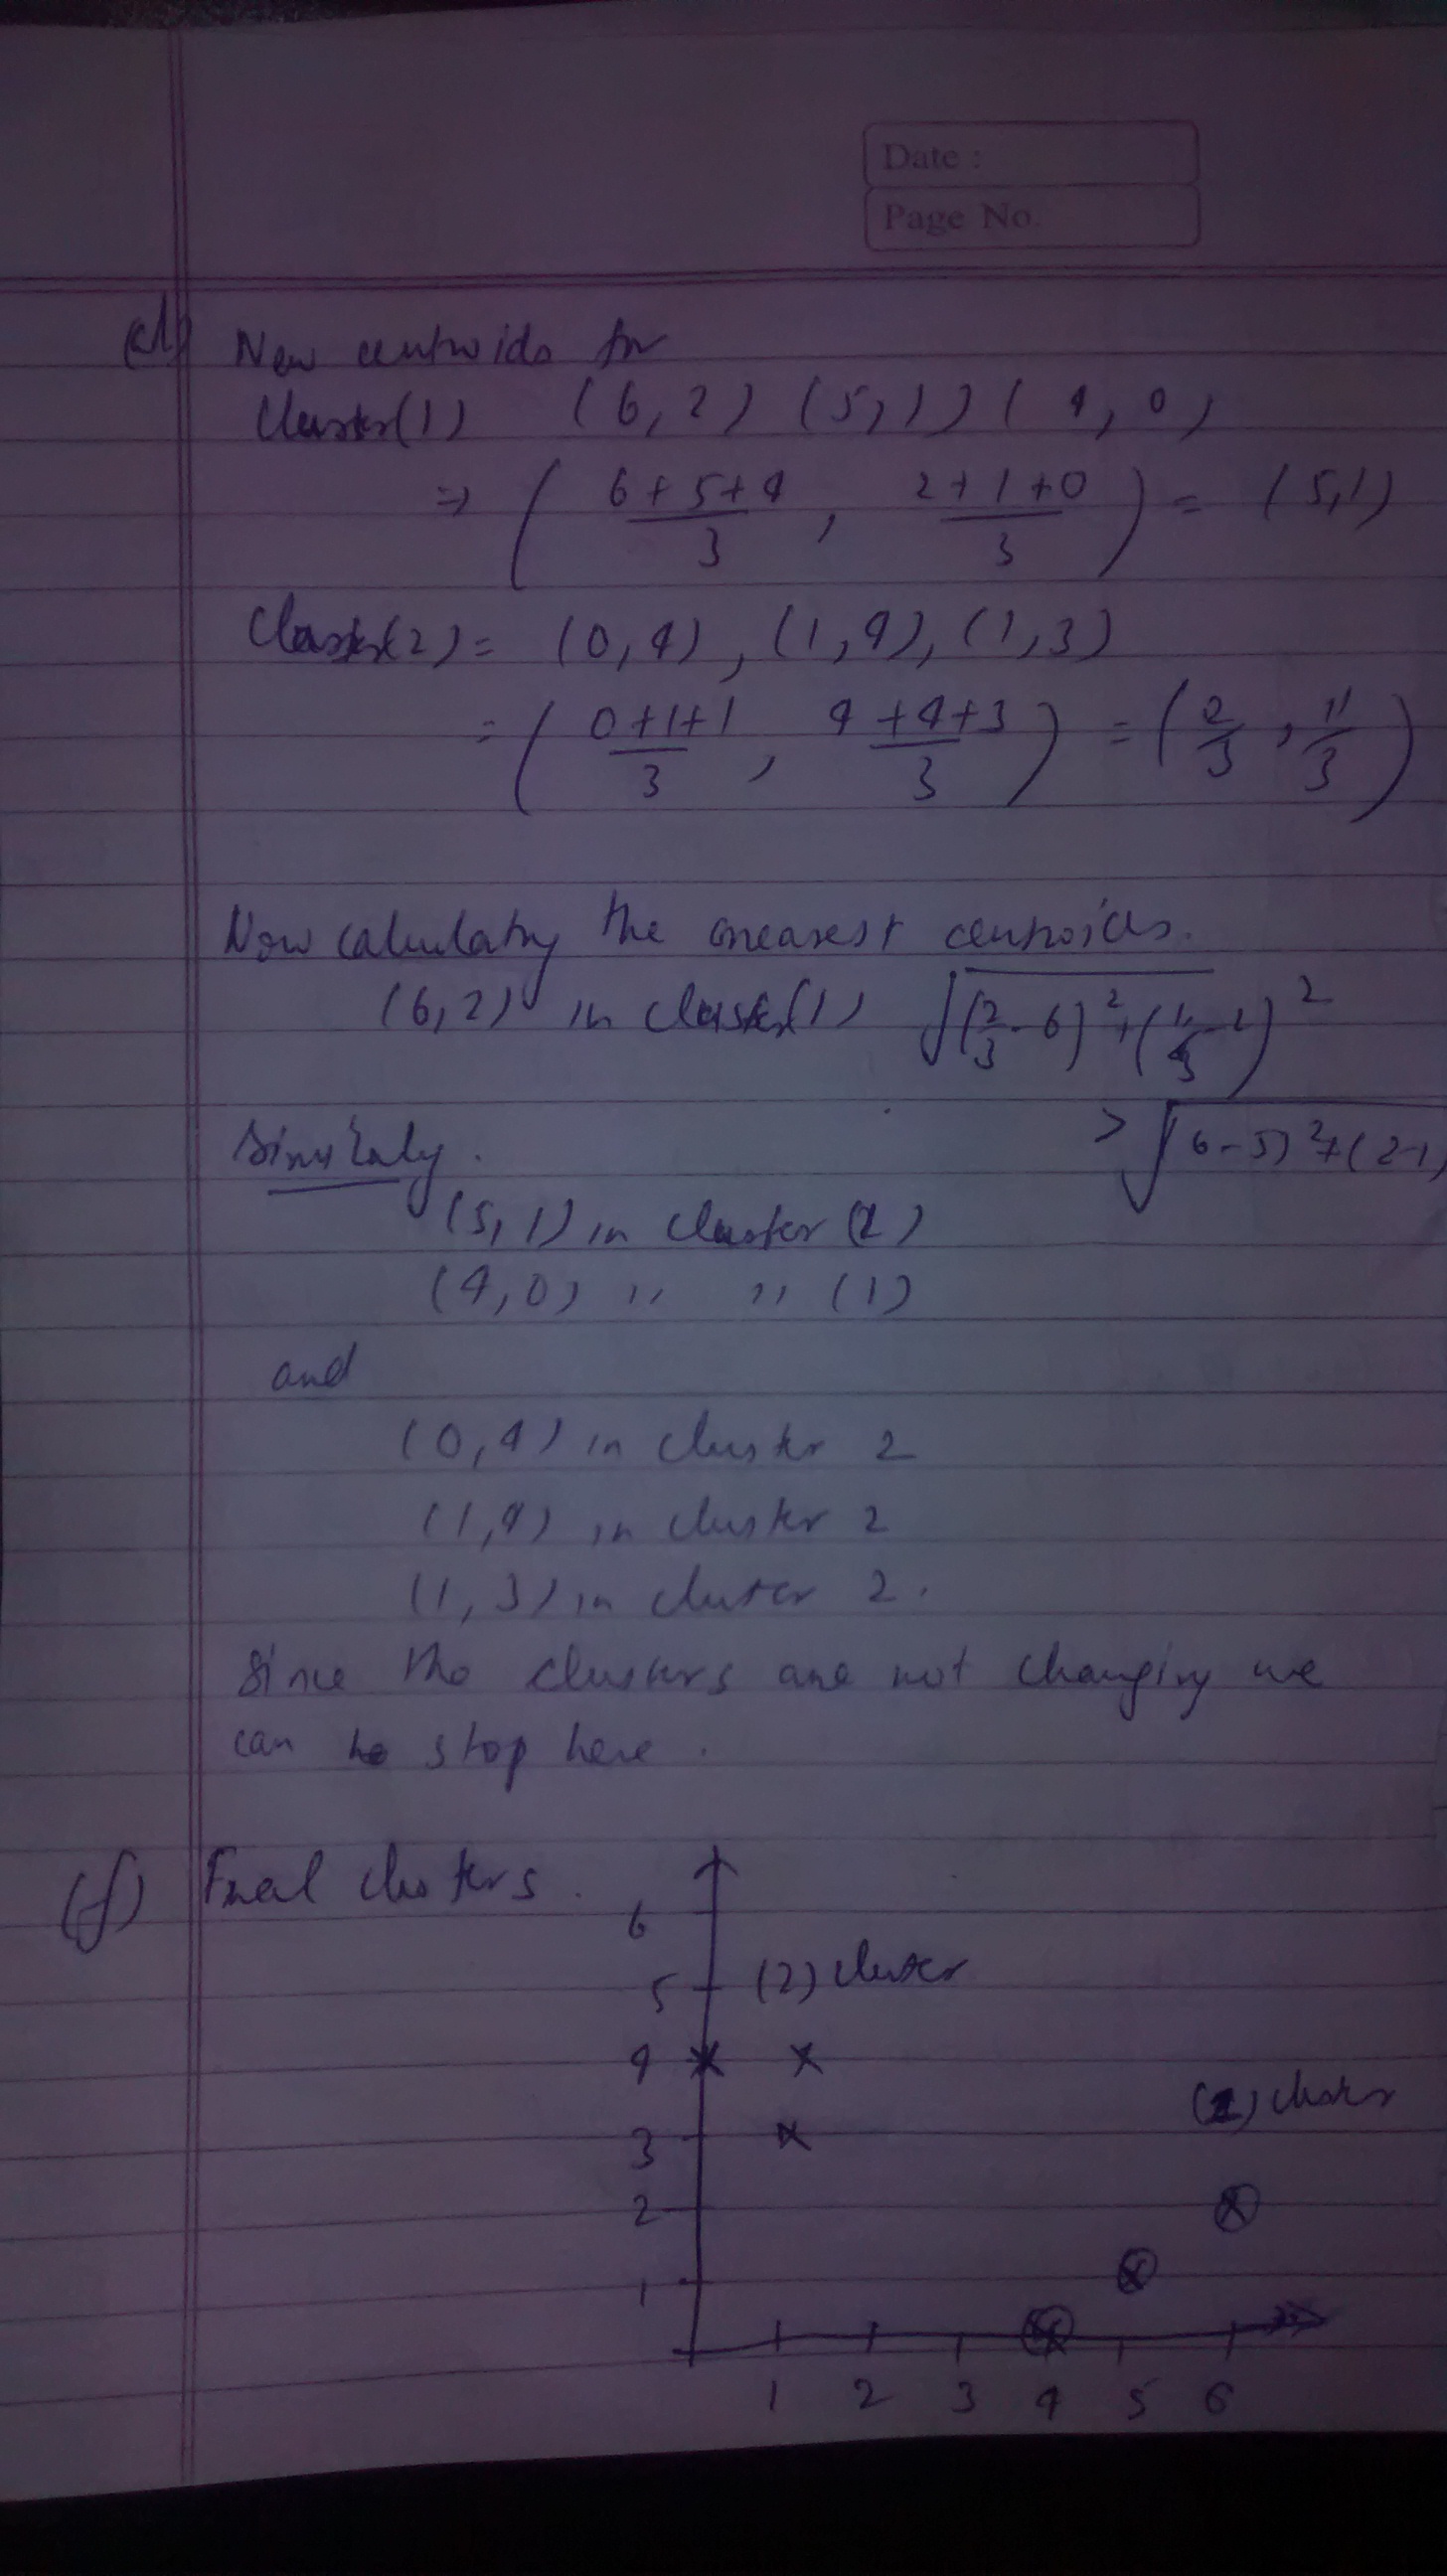 Date :
Page No.
(d) New centroids for
Cluster(1) (6,2) (5,1) (4,0)
=> ( 6+5+4 / 3 , 2+1+0 / 3 ) = (5,1)
Cluster(2) = (0,4), (1,4), (1,3)
= ( 0+1+1 / 3 , 4+4+3 / 3 ) = ( 2/3 , 11/3 )
Now calculating the nearest centroids.
(6,2) in cluster(1) √(2/3 - 6)² + (11/3 - 2)²
> √(6-5)² + (2-1)
Similarly.
(5,1) in cluster (1)
(4,0) ,, ,, (1)
and
(0,4) in cluster 2
(1,4) in cluster 2
(1,3) in cluster 2.
Since the clusters are not changing we
can stop here.
(f) Final clusters.
6
5 (2) cluster
4
(1) cluster
3
2
1
1 2 3 4 5 6